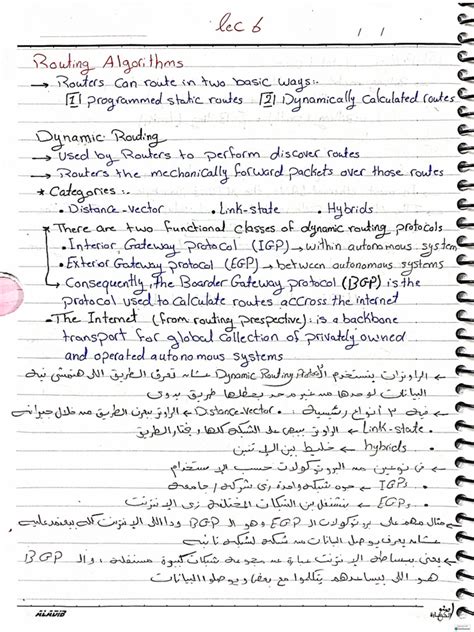 lec 6
/ /
Routing Algorithms
→ Routers Can route in two basic ways:-
[1] programmed static routes [2] Dynamically Calculated routes
Dynamic Routing
→ Used by Routers to perform discover routes
→ Routers the mechonically forward packets over those routes
* Categories :-
• Distance-vector • Link-state • Hybrids
* There are two functional classes of dynamic routing protocols
• Interior Gateway protocol (IGP) → within autonomous system
• Exterior Gateway protocol (EGP) → between autonomous systems
↳ Consequently, The Boarder Gateway protocol (BGP) is the
protocol used to calculate routes accross the internet
• The Internet (from routing prespective): is a backbone
transport for global collection of privately owned
and operated autonomous systems
← الراوترات بتستخدم Dynamic Routing عشان تعرف الطريق اللي هتمشي فيه
البيانات لوحدها من غير محد يحطلها طريق يدوي
← فيه 3 أنواع رئيسية • Distance-vector ← الراوتر بيعرف الطريق من خلال جيرانه
• Link-state ← الراوتر يبص على الشبكة كلها ويختار الطريق
• hybrids ← خليط بين الاتنين
← في نوعين من البروتوكولات حسب الاستخدام
• IGPs ← جوه شبكة واحدة زي شركة / جامعة
• EGPs ← بتشتغل بين الشبكات المختلفة زي الانترنت
← مثال مهم على بروتوكولات الـ EGP وهو الـ BGP وده اللي الانترنت كله بيعتمد عليه
عشان يعرف يوصل البيانات من شبكة لشبكة تانية
← يعني ببساطة الانترنت عبارة عن مجموعة شبكات كبيرة مستقلة، والـ BGP
هو اللي بيساعدهم يتكلموا مع بعض ويوصلوا البيانات
ALADIB